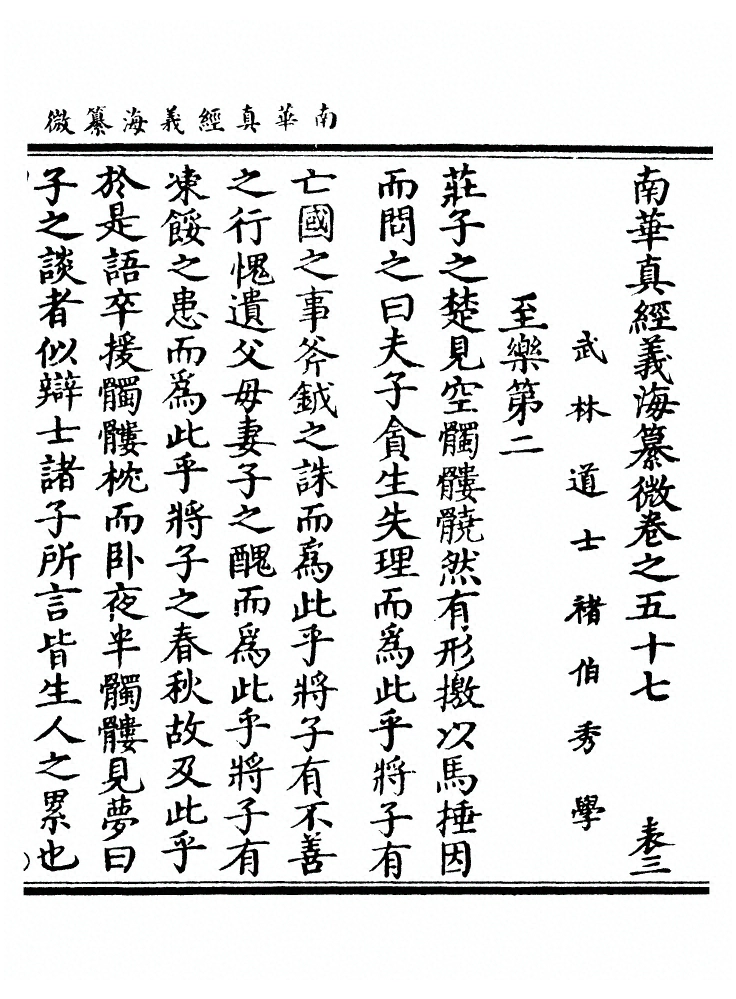 南華真經義海纂微
南華真經義海纂微卷之五十七 表三
武林道士褚伯秀學
至樂第二
莊子之楚見空髑髏髐然有形撽以馬捶因
而問之曰夫子貪生失理而爲此乎將子有
亡國之事斧鉞之誅而爲此乎將子有不善
之行愧遺父母妻子之醜而爲此乎將子有
凍餒之患而爲此乎將子之春秋故及此乎
於是語卒援髑髏枕而卧夜半髑髏見夢曰
子之談者似辯士諸子所言皆生人之累也